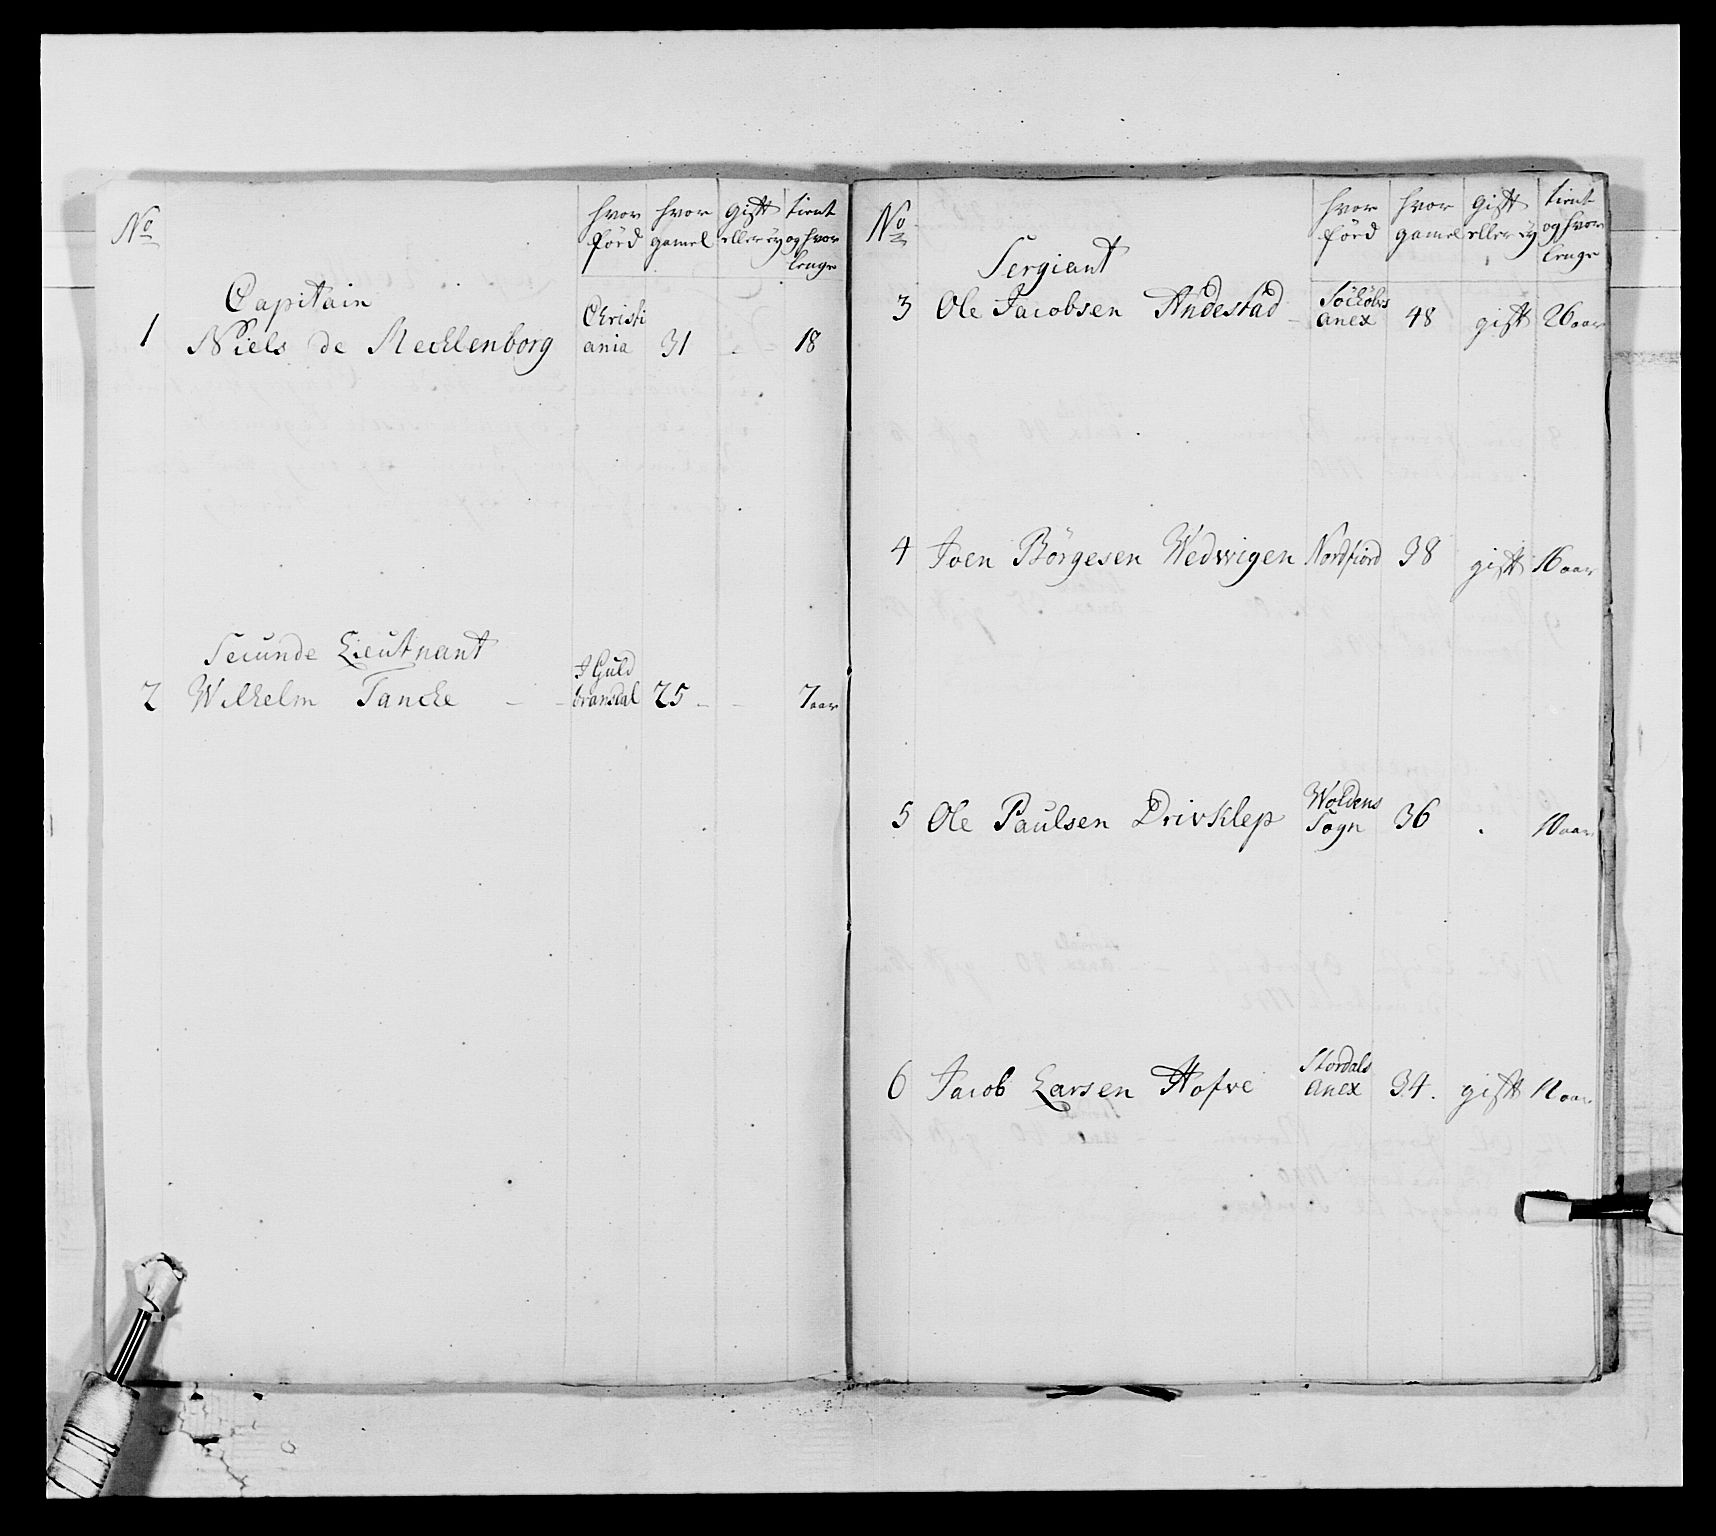 No
hvor förd
hvor gamel
gift eller ey
tient og hvor lenge
Capitain
1 Niels de Mecklenborg Christiania 31 - 18
Secunde Lieutnant
2 Wilhelm Tancke - - I Guldbransdal 25 - - 7 aar
No
hvor förd
hvor gamel
gift eller ey
tient og hvor lenge
Sergiant
3 Ole Jacobsen Andestad - anex 48 gift 26 aar
4 Joen Börgesen Wedvigen Nordfiord 38 gift 16 aar
5 Ole Paulsen Drivklep Woldens Sogn 36 . 10 aar
6 Jacob Larsen Hofve Stordals anex 34. gift 11 aar